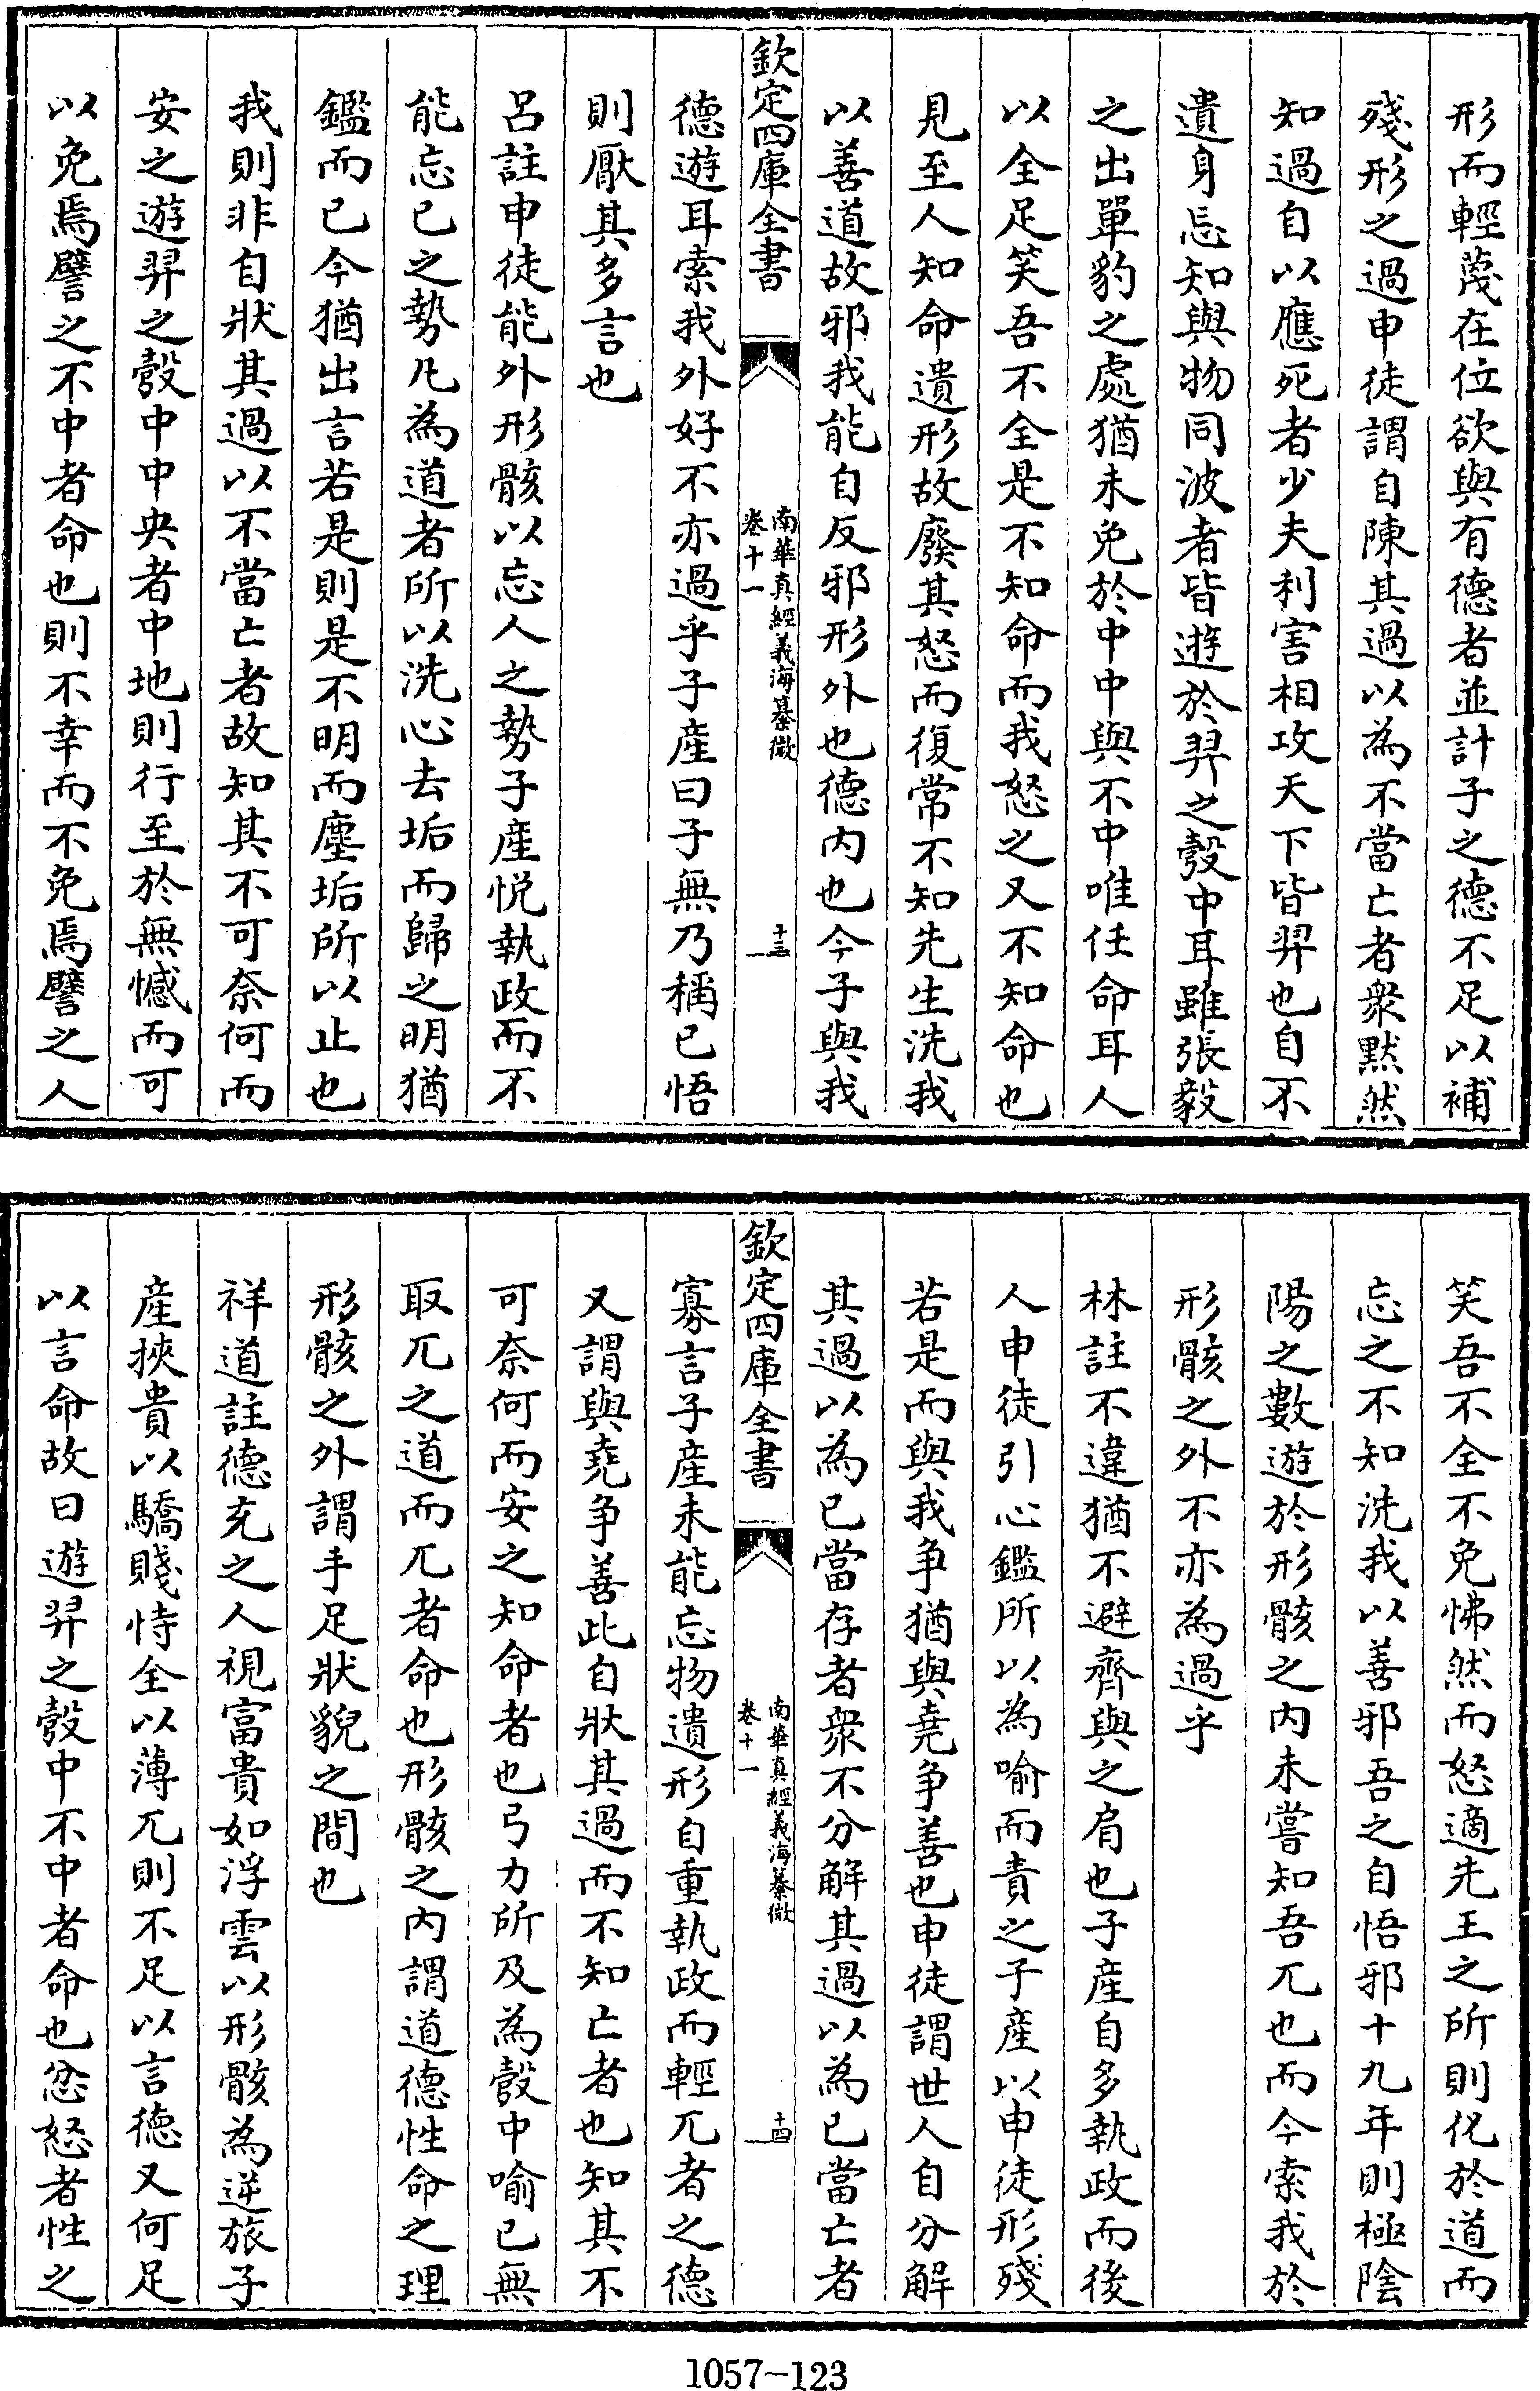 形而輕蔑在位欲與有德者並計子之德不足以補
殘形之過申徒謂自陳其過以為不當亡者衆黙然
知過自以應死者少夫利害相攻天下皆羿也自不
遺身忘知與物同波者皆遊於羿之彀中耳雖張毅
之出單豹之處猶未免於中中與不中唯任命耳人
以全足笑吾不全是不知命而我怒之又不知命也
見至人知命遺形故廢其怒而復常不知先生洗我
以善道故邪我能自反邪形外也德内也今子與我
欽定四庫全書
南華真經義海纂微
卷十一
十三
德遊耳索我外好不亦過乎子産曰子無乃稱已悟
則厭其多言也
呂註申徒能外形骸以忘人之勢子産悦執政而不
能忘已之勢凡為道者所以洗心去垢而歸之明猶
鑑而已今猶出言若是則是不明而塵垢所以止也
我則非自狀其過以不當亡者故知其不可奈何而
安之遊羿之彀中中央者中地則行至於無憾而可
以免焉譬之不中者命也則不幸而不免焉譬之人
笑吾不全不免怫然而怒適先王之所則化於道而
忘之不知洗我以善邪吾之自悟邪十九年則極陰
陽之數遊於形骸之内未嘗知吾兀也而今索我於
形骸之外不亦為過乎
林註不違猶不避齊與之肩也子産自多執政而後
人申徒引心鑑所以為喻而責之子産以申徒形殘
若是而與我争猶與堯争善也申徒謂世人自分解
其過以為已當存者衆不分解其過以為已當亡者
欽定四庫全書
南華真經義海纂微
卷十一
十四
寡言子産未能忘物遺形自重執政而輕兀者之德
又謂與堯争善此自狀其過而不知亡者也知其不
可奈何而安之知命者也弓力所及為彀中喻已無
取兀之道而兀者命也形骸之内謂道德性命之理
形骸之外謂手足狀貌之間也
祥道註德充之人視富貴如浮雲以形骸為逆旅子
産挾貴以驕賤恃全以薄兀則不足以言德又何足
以言命故曰遊羿之彀中不中者命也忿怒者性之
1057-123